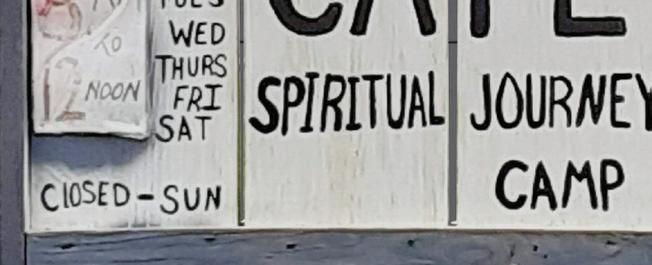 TUES
WED
THURS
FRI
SAT
TO
12 NOON
CLOSED - SUN
CAFE
SPIRITUAL JOURNEY
CAMP